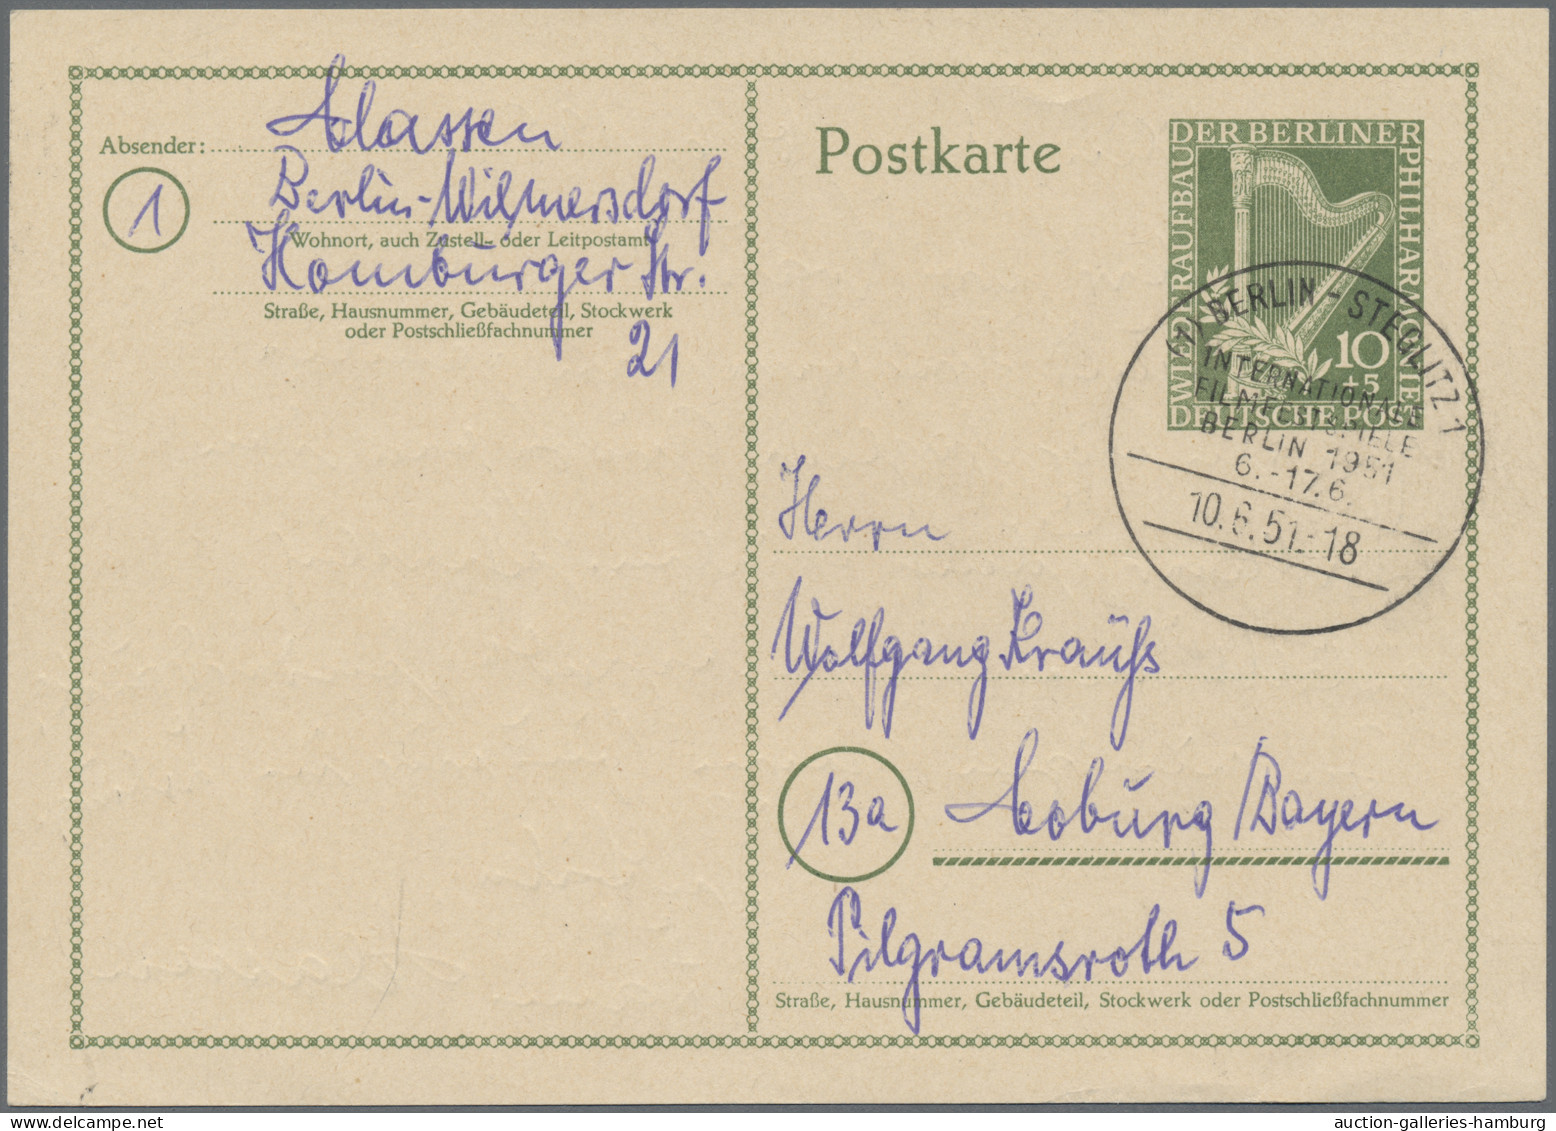 Absender: Classen
1
Berlin-Wilmersdorf
Wohnort, auch Zustell- oder Leitpostamt
Homburger Str.
Straße, Hausnummer, Gebäudeteil, Stockwerk
oder Postschließfachnummer
21
Postkarte
WIEDERAUFBAU DER BERLINER PHILHARMONIE
10
+5
DEUTSCHE POST
(1) BERLIN-STEGLITZ 1
INTERNATIONALE
FILMFESTSPIELE
BERLIN 1951
6.-17.6.
10.6.51.-18
Herrn
Wolfgang Krauß
13a Coburg/Bayern
Pilgramsroth 5
Straße, Hausnummer, Gebäudeteil, Stockwerk oder Postschließfachnummer
auction-galleries-hamburg